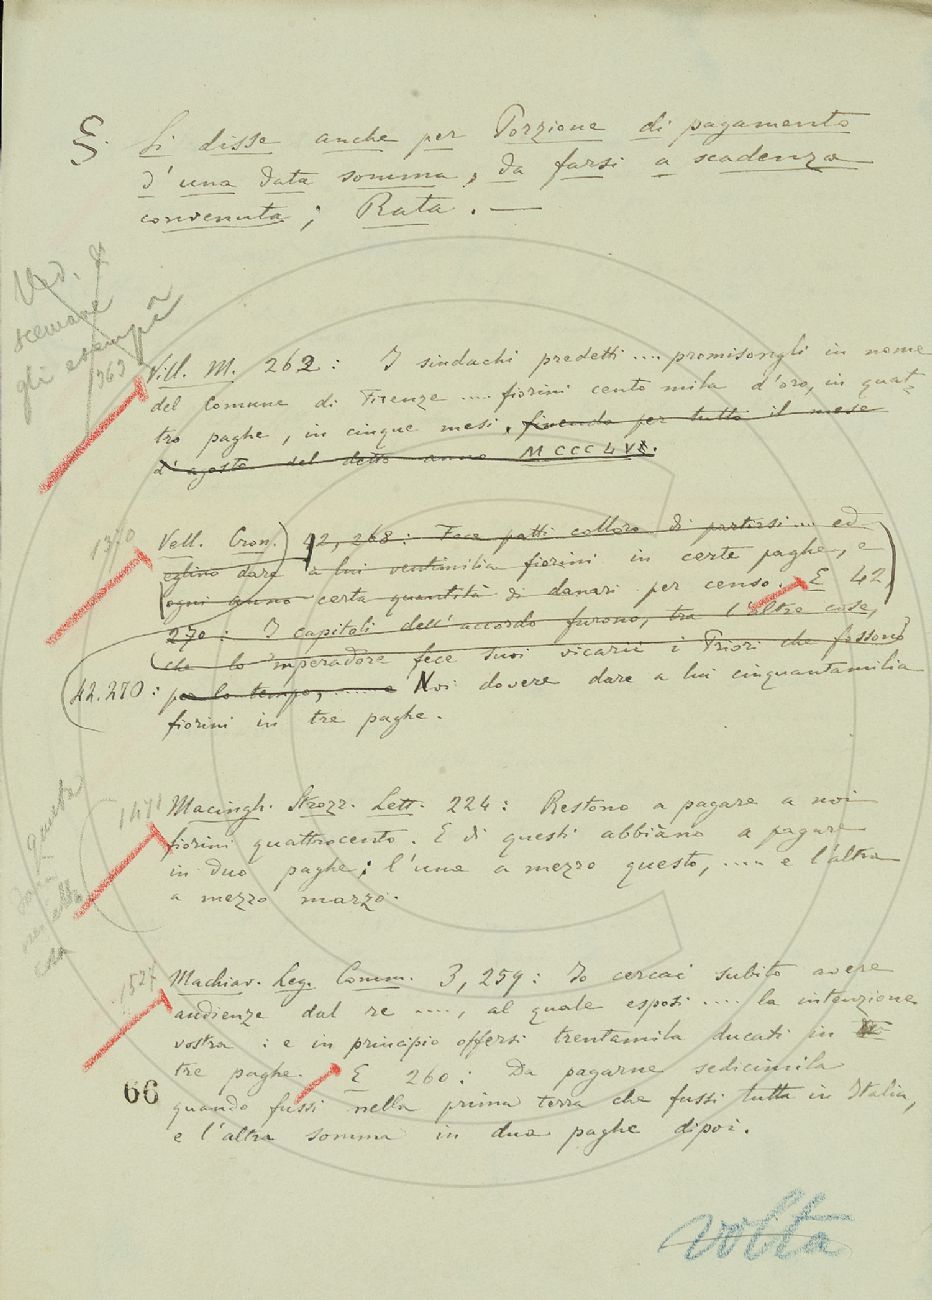 §. Si disse anche per Porzione di pagamento
d'una data somma, da farsi a scadenza
convenuta; Rata. —
Ved. di
scemare
gli esempi
1363
Vill. M. 262: I sindachi predetti .... promisongli in nome
del Comune di Firenze .... fiorini cento mila d'oro, in quat-
tro paghe, in cinque mesi, fivendo per tutto il mese
d'agosto del detto anno MCCCLVI.
1370
Vell. Cron. 42, 268: Fece patti colloro di partirsi .... ed
eglino dare a lui ventimilia fiorini in certe paghe, e
ogni anno certa quantità di danari per censo. E 42
270: I capitoli dell'accordo furono, tra l'altre cose,
che lo 'mperadore fece suoi vicarii i Priori che fossono
42.270: per lo tempo, .... e Noi dovere dare a lui cinquantamilia
fiorini in tre paghe.
1471
Macingh. Strozz. Lett. 224: Restono a pagare a noi
fiorini quattrocento. E di questi abbiàno a pagare
in duo paghe; l'una a mezzo questo, .... e l'altra
a mezzo marzo.
questa
1527
Machiav. Leg. Comm. 3, 259: Io cercai subito avere
audienze dal re ...., al quale esposi .... la intenzione
vostra: e in principio offersi trentamila ducati in
tre paghe. E 260: Da pagarne sedicimila
66
quando fussi nella prima terra che fussi tutta in Italia,
e l'altra somma in dua paghe dipoi.
volta